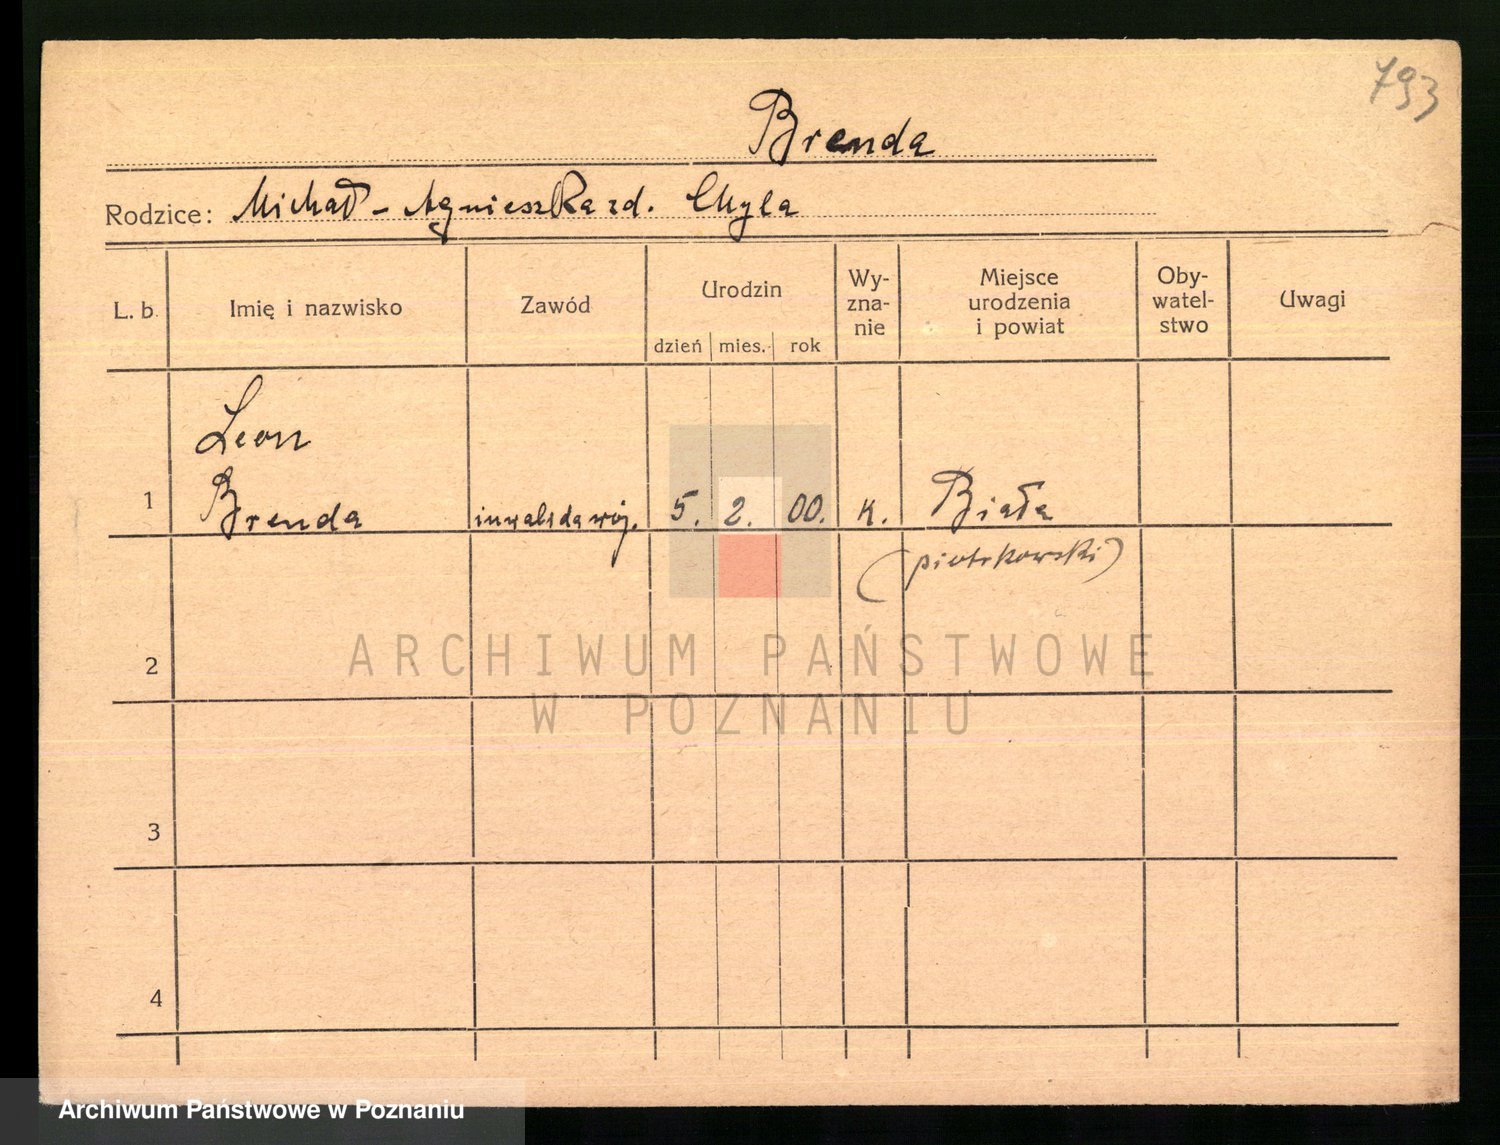 793
Brenda
Rodzice: Michał - Agnieszka zd. Chyla
L. b.
Imię i nazwisko
Zawód
Urodzin
dzień mies. rok
Wy-
zna-
nie
Miejsce
urodzenia
i powiat
Oby-
watel-
stwo
Uwagi
Leon
1 Brenda inwalida woj. 5. 2. 00. k. Biała
(piotrkowski)
2
3
4
ARCHIWUM PAŃSTWOWE
W POZNANIU
Archiwum Państwowe w Poznaniu